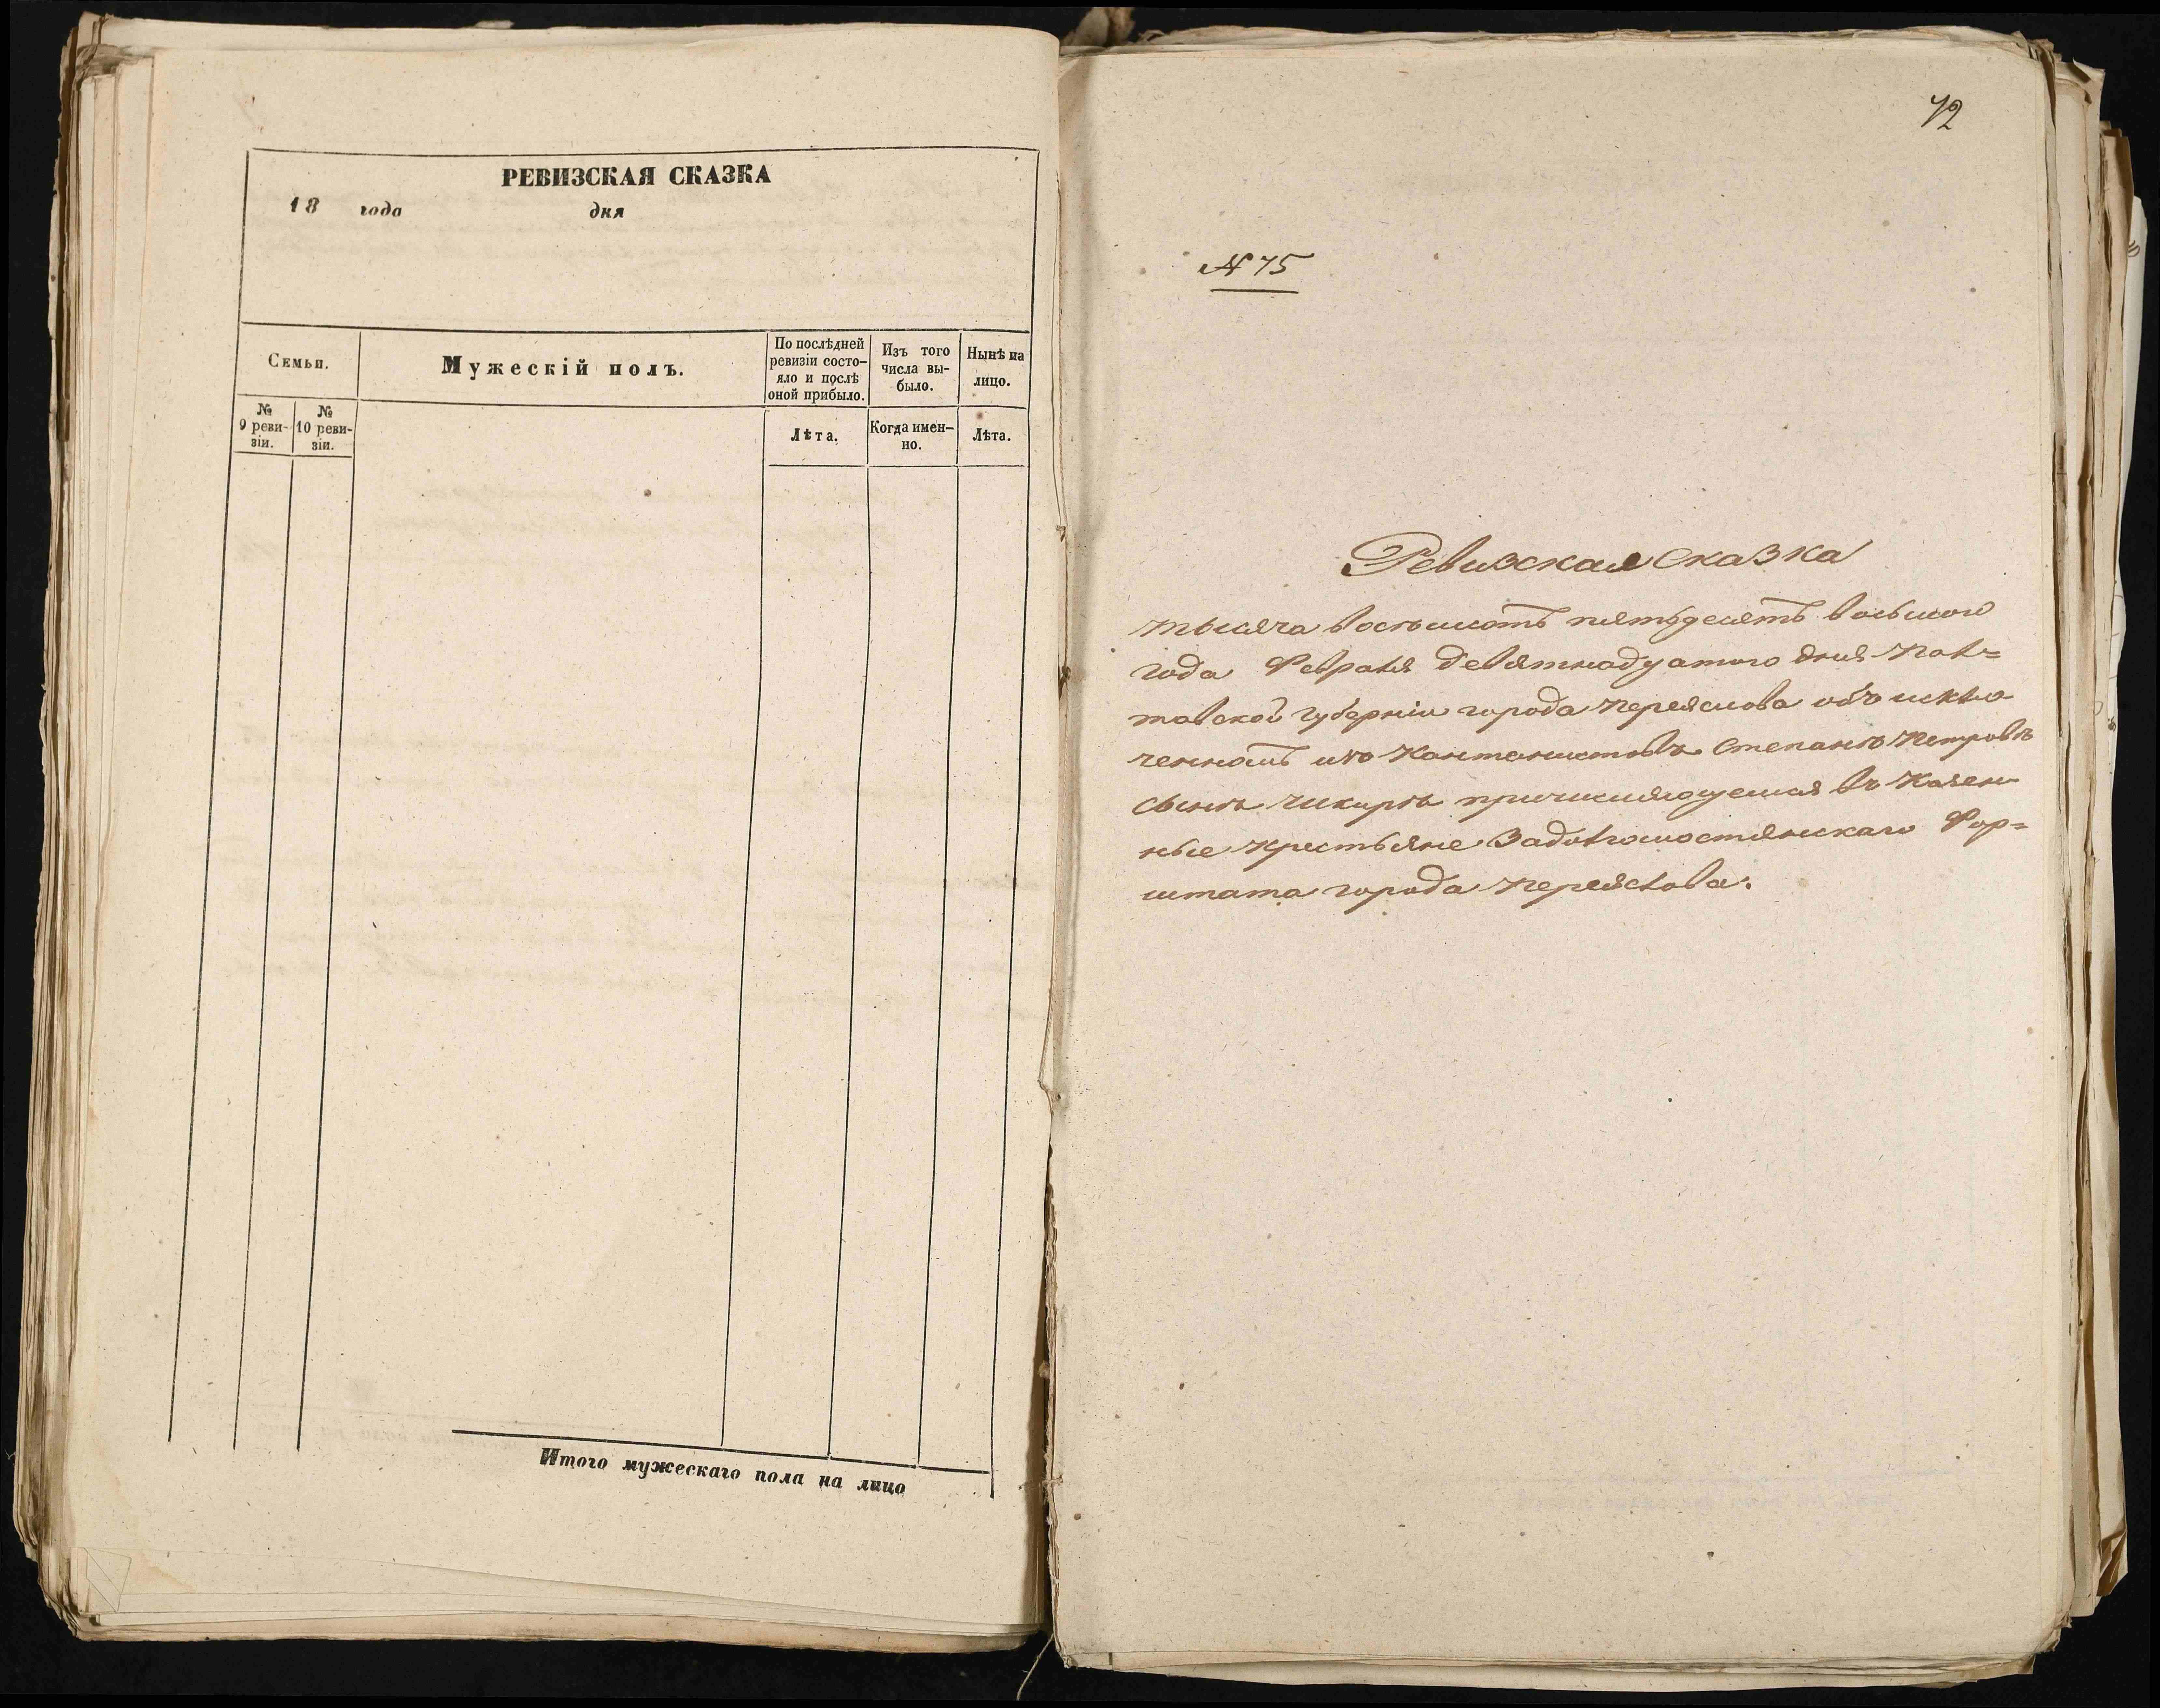 РЕВИЗСКАЯ СКАЗКА
18 года дня
Семьи.
Мужескій полъ.
По послѣдней
ревизіи состо-
яло и послѣ
оной прибыло.
Изъ того
числа вы-
было.
Нынѣ на
лицо.
№
9 реви-
зіи.
№
10 реви-
зіи.
Лѣта.
Когда имен-
но.
Лѣта.
Итого мужескаго пола на лицо
72
№ 75
Ревизская Сказка
тысяча восемьсотъ пятьдесятъ восьмого
года Февраля девятнадцатого дня Пол=
тавской губерніи города Переяслова объ исклю-
ченномъ изъ Кантонистовъ Степанъ Петровъ
сынъ Чикиръ причисляющемся въ Казен-
ные Крестьяне Задолгомостянскаго Фор=
штата города Переяслова.